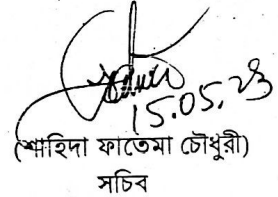 15.05.23
(শাহিদা ফাতেমা চৌধুরী)
সচিব